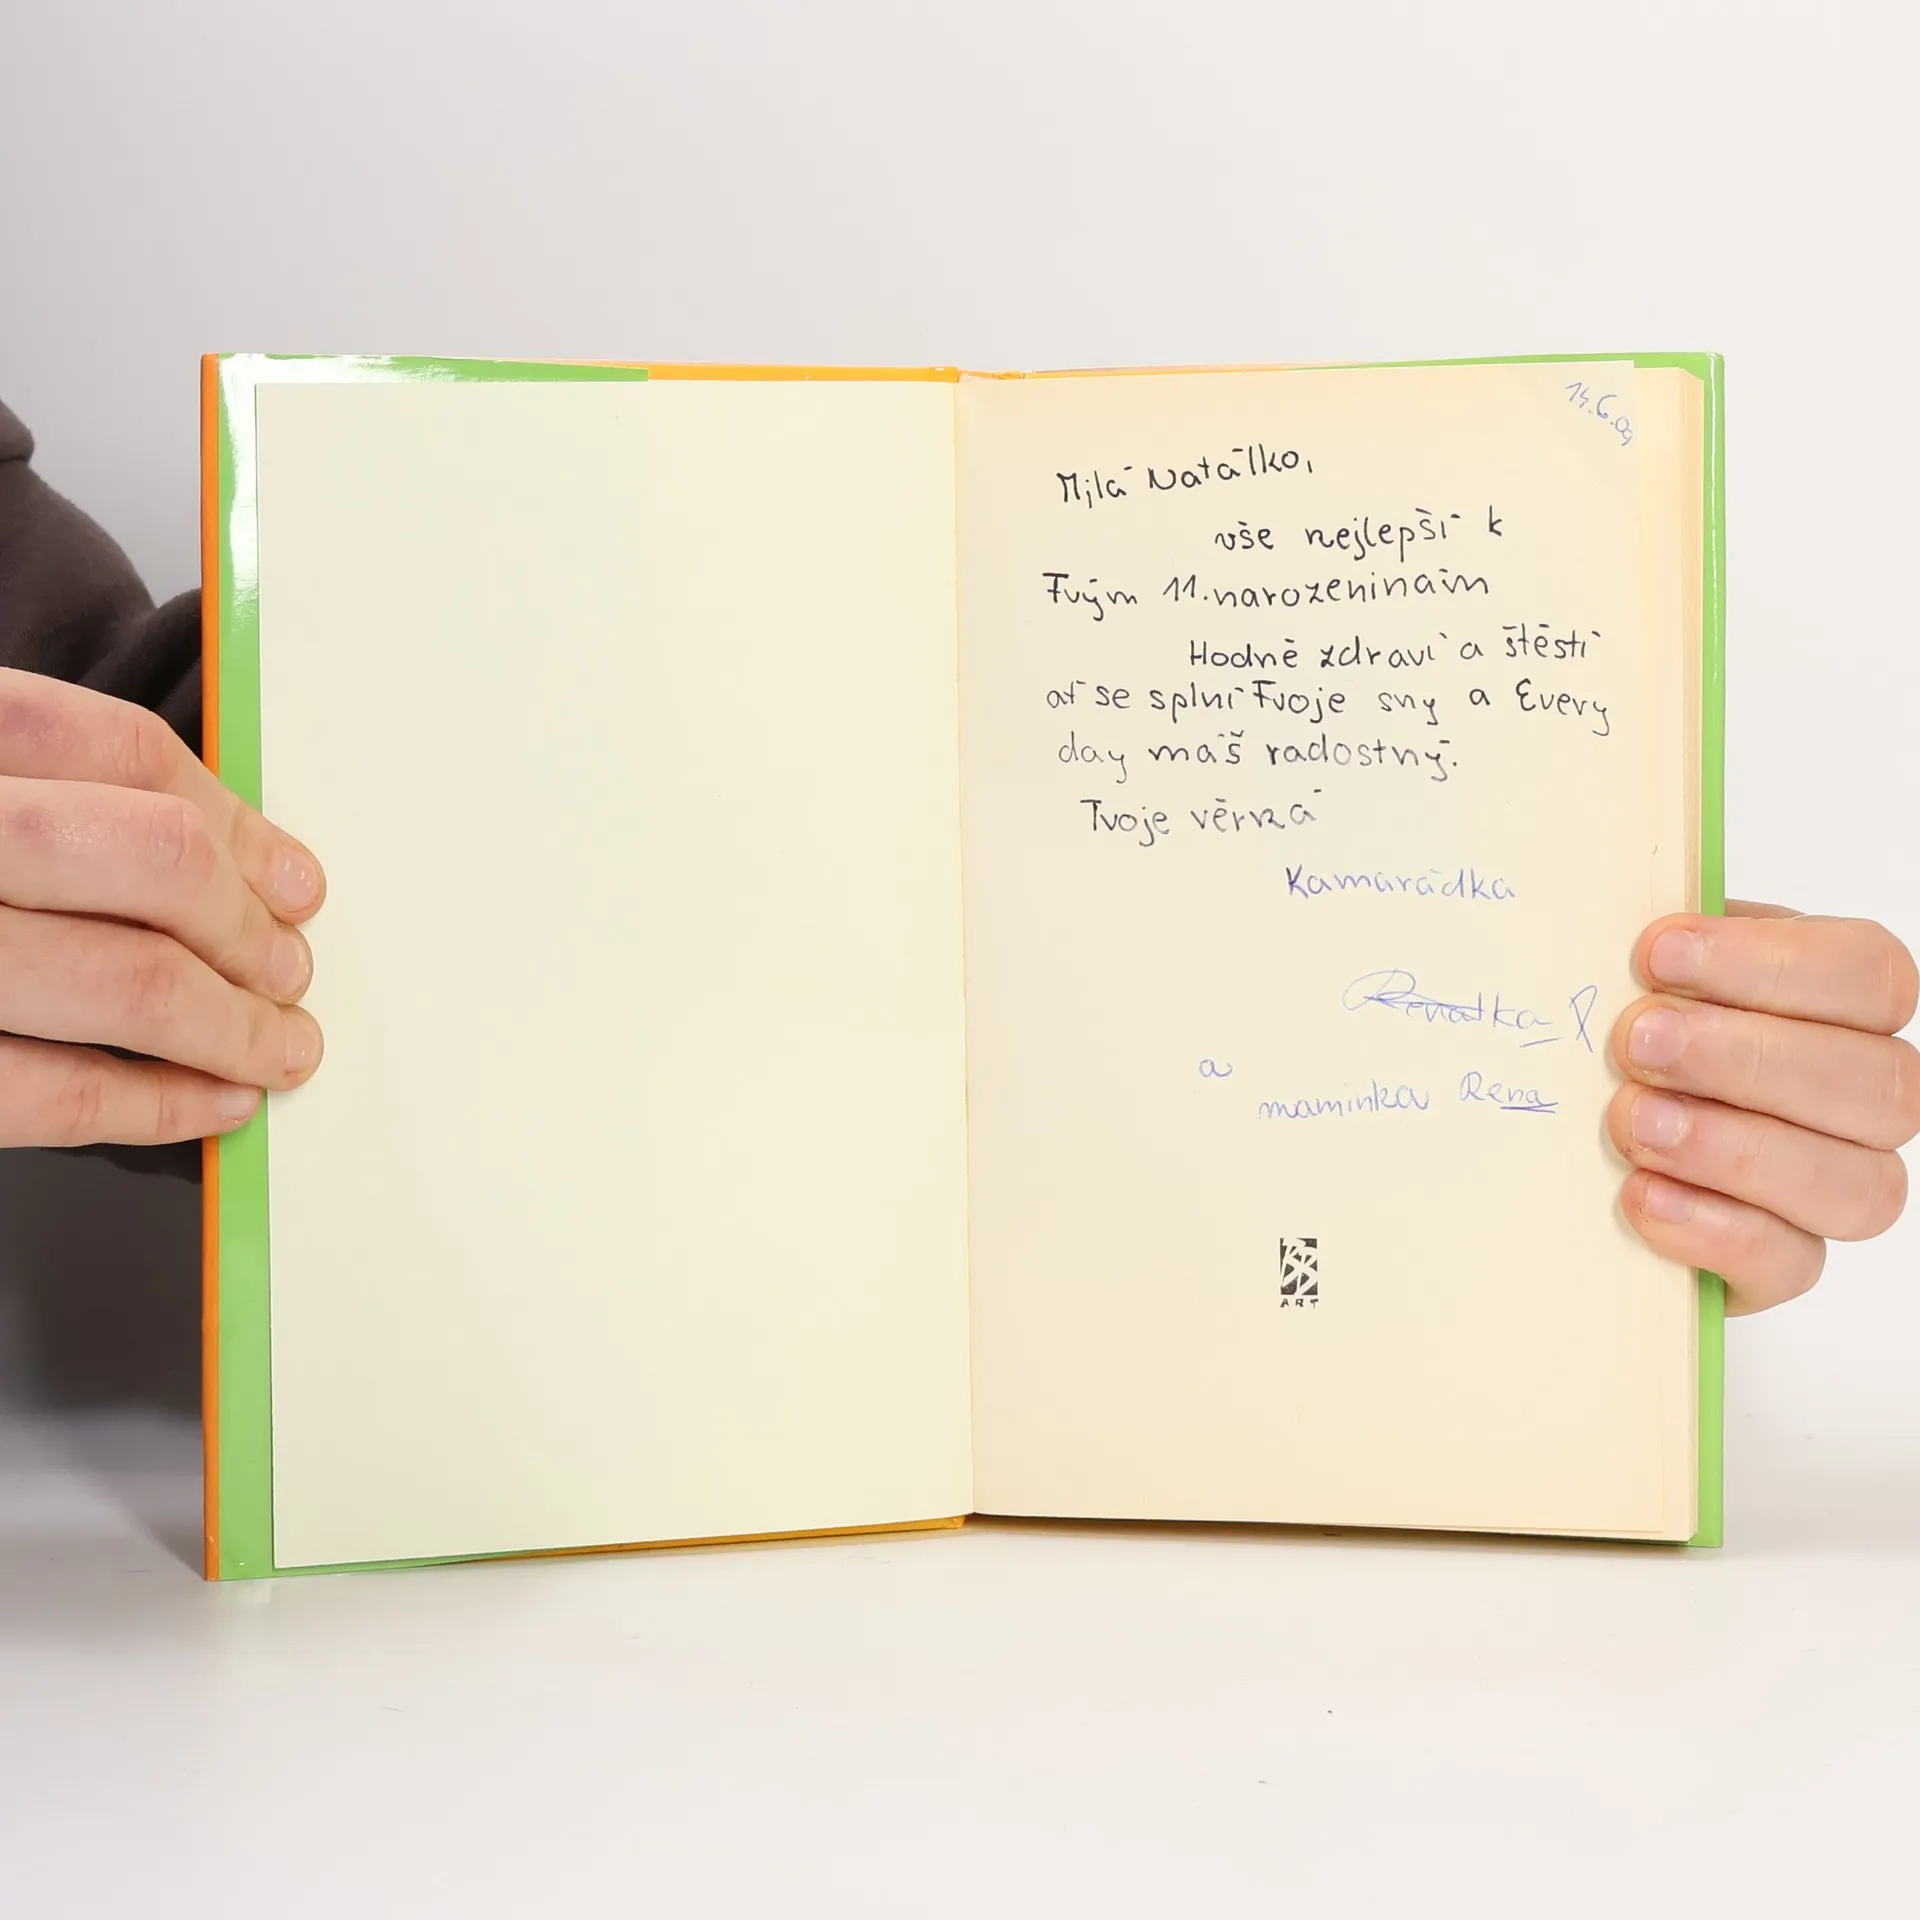 14.6.09
Milá Natálko,
vše nejlepší k
Tvým 11. narozeninám
Hodně zdraví a štěstí
ať se splní Tvoje sny a Every
day máš radostný.
Tvoje věrná
Kamarádka
Renatka
a
maminka Rena
ART